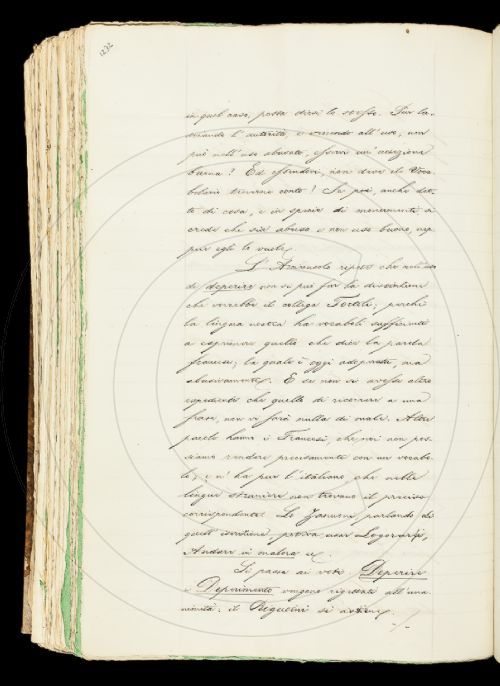 1232
in quel caso, possa dirsi lo stesso. Pur la-
sciando l'autorità, e venendo all'uso, non
può nell'uso abusato, esservi un'accezione
buona? Ed essendovi, non deve il Voca-
bolario tenerne conto? Se poi, anche det-
to di cosa, e in specie di
crede che sia abuso e non uso buono, nep-
pur egli lo vuole.
L'Arciconsolo rispose che
di deperire non si può far la distinzione
che vorrebbe il collega Tortoli; perché
la lingua nostra ha vocaboli sufficienti
a esprimere quello che dice la parola
francese; la quale è oggi adoprata, ma
abusivamente. E se non si avesse altro
espediente che quello di ricorrere a una
frase, non si farà nulla di male. Altre
parole hanno i Francesi, che noi non pos-
siamo rendere precisamente con un vocabo-
lo; e n'ha pur l'italiano che nelle
lingue straniere non trovano il preciso
corrispondente. Lo Zanoni parlando di
quest' iscrizione, poteva usar Logorarsi,
Andare in malora ec.
Si passa ai voti. Deperire
e Deperimento vengono rigettati all'una-
nimità: il Bigazzi si astiene.